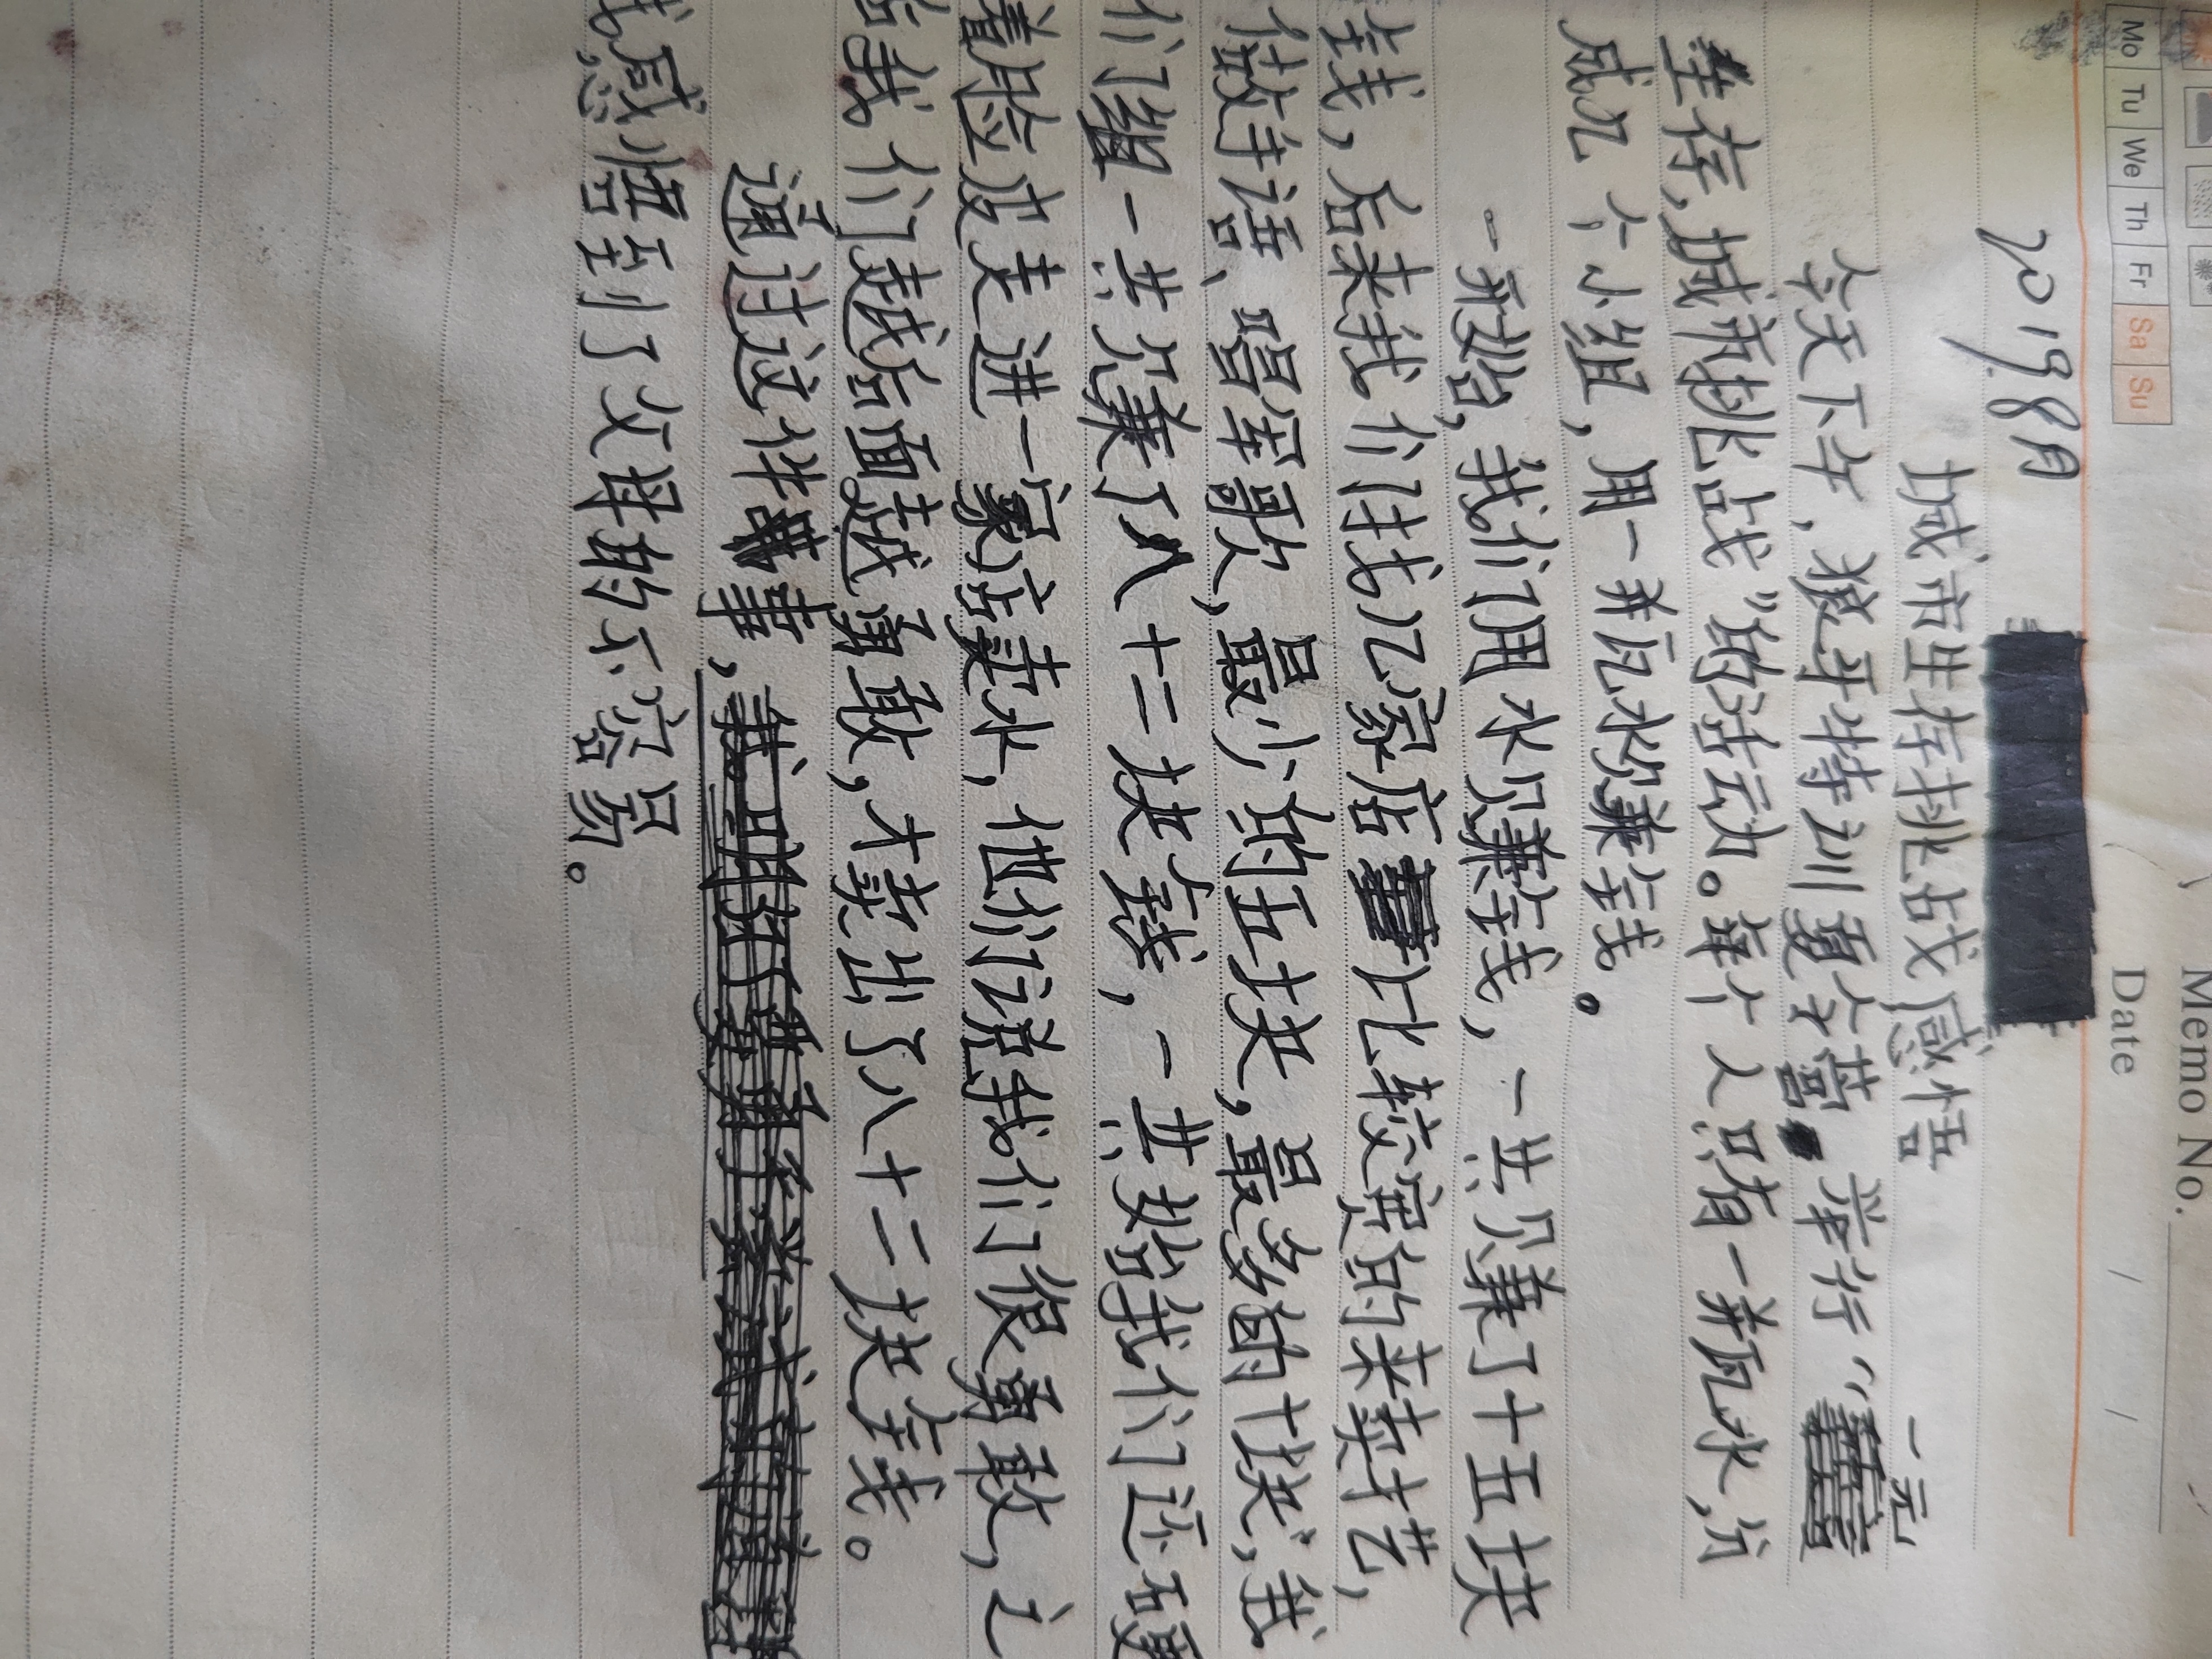 Memo No.
Mo Tu We Th Fr Sa Su Date / /
2019.8月
城市生存挑战感悟
一元
今天下午，狼牙特训夏令营举行“
生存，城市挑战”的活动。每个人只有一瓶水，分
成几个小组，用一瓶水赚钱。
一开始，我们用水赚钱，一共赚了十五块
钱，后来我们找几家店比较宽的来卖才艺，
做手语、唱军歌，最少的五块，最多的十块，我
们组一共赚了八十二块钱，一共始我们还硬
着脸皮走进一家店卖水，他们说我们很勇敢，之
后我们越后面越勇敢，才卖出了八十二块钱。
通过这件事，
我感悟到了父母的不容易。